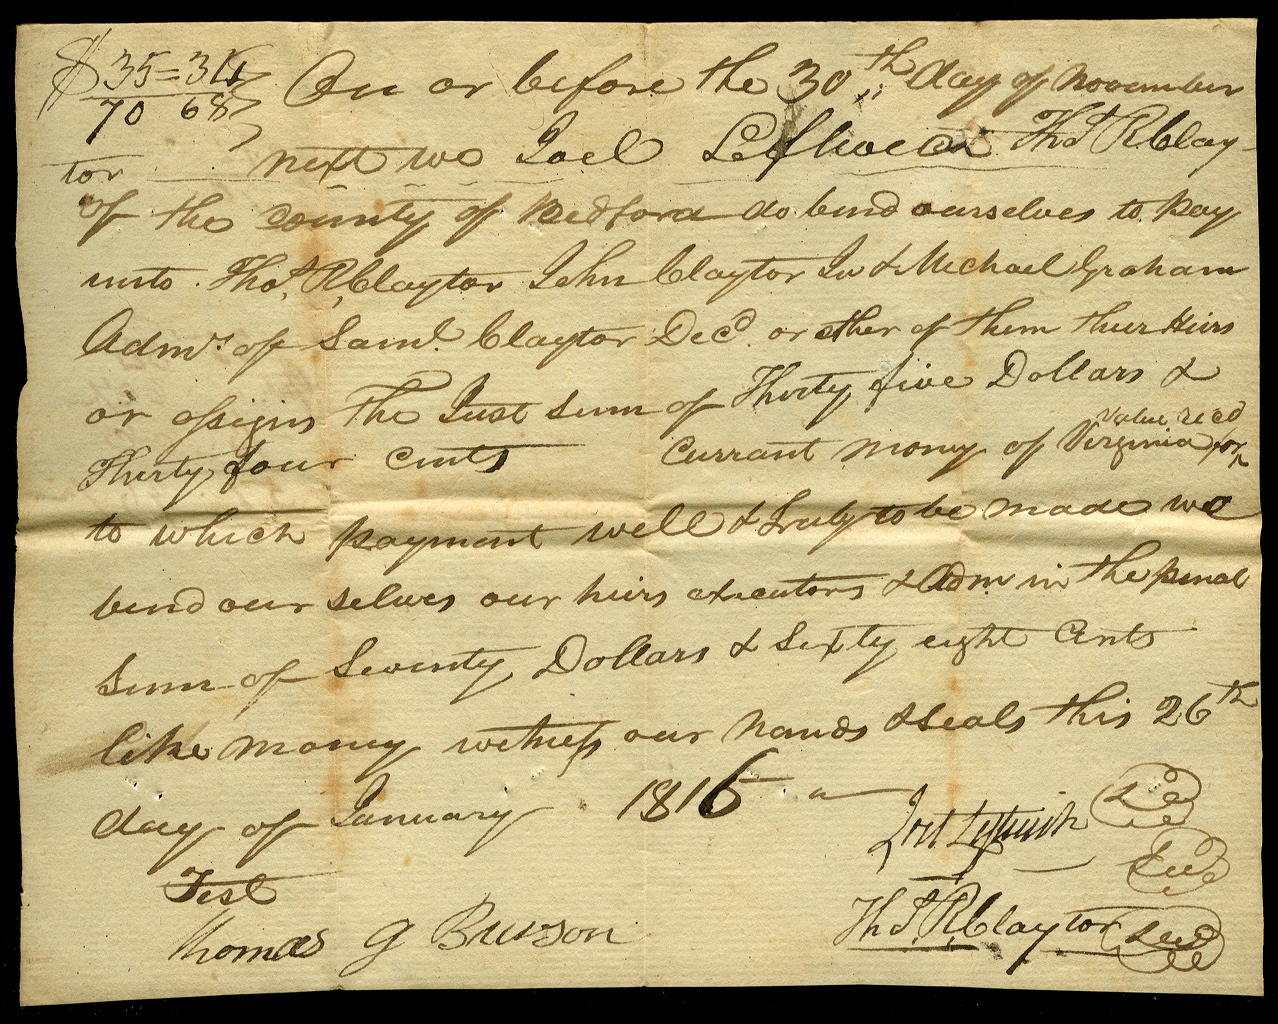 $35=34
70 68
On or before the 30th day of November
next we Joel Leftwich & Thos R Clay-
tor
of the county of Bedford do bind ourselves to pay
unto Thos. R, Claytor John Claytor Jn & Michael Graham
Admrs of Saml. Claytor Decd. or ether of them thur Heirs
or assigns the Just sum of Thirty five Dollars &
Thirty four cents currant money of Virginia value recd for
to which payment well & truly to be made we
bend our selves our heirs executors & Adm in the penal
Sum of Seventy Dollars & Sixty eight Cents
like money witness our hands & seals this 26th
day of January 1816
Joel Leftwich Seal
Seal
Test
Thomas G Burson
Ths. R, Claytor Seal